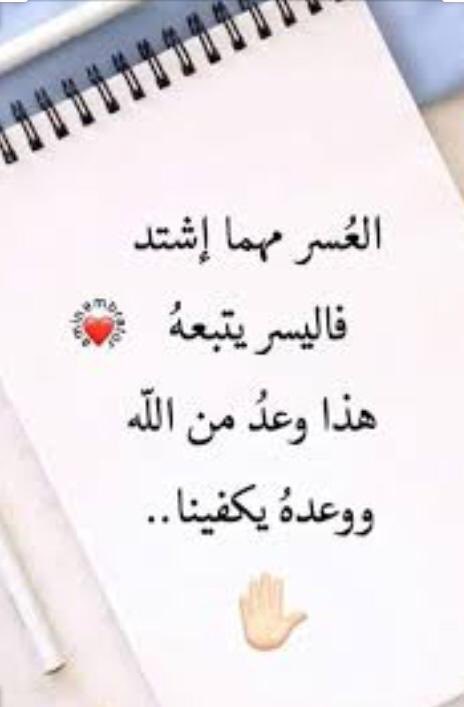 العُسر مهما إشتد
فاليسر يتبعهُ
هذا وعدُ من اللّه
ووعدهُ يكفينا..